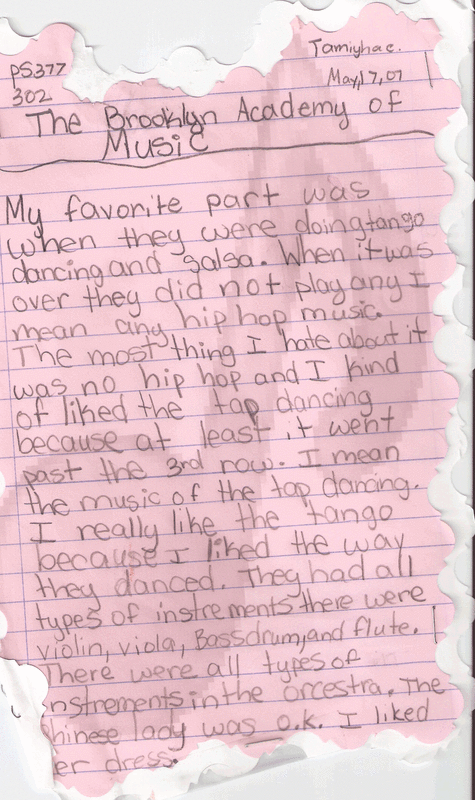 Tamiyha c.
PS377
May,17,07
302
The Brooklyn Academy of
Music
My favorite part was
when they were doing tango
dancing and salsa. When it was
over they did not play any I
mean any hip hop music.
The most thing I hate about it
was no hip hop and I kind
of liked the tap dancing
because at least it went
past the 3rd row. I mean
the music of the tap dancing.
I really like the tango
because I liked the way
they danced. They had all
types of instrements there were
violin, viola, Bassdrum,and flute.
There were all types of
nstrements in the orcestra. The
hinese lady was o.k. I liked
er dress.